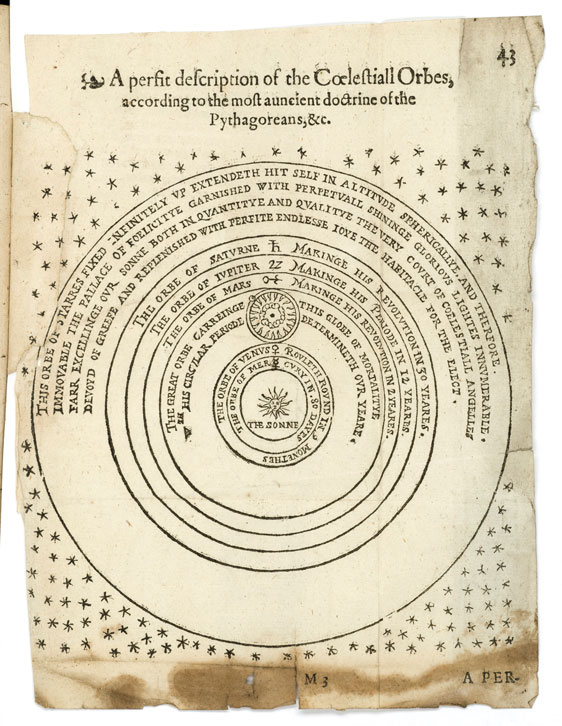 43
A perfit deſcription of the Cœleſtiall Orbes,
according to the moſt auncient doctrine of the
Pythagoreans, &c.
THIS ORBE OF STARRES FIXED INFINITELY VP EXTENDETH HIT SELF IN ALTITVDE SPHERICALLYE, AND THERFORE
IMMOVABLE THE PALLACE OF FOELICITYE GARNISHED WITH PERPETVALL SHININGE GLORIOVS LIGHTES INNVMERABLE.
FARR EXCELLINGE OVR SONNE BOTH IN QVANTITYE AND QVALITYE THE VERY COVRT OF COELESTIALL ANGELLES
DEVOYD OF GREEFE AND REPLENISHED WITH PERFITE ENDLESSE IOYE THE HABITACLE FOR THE ELECT.
THE ORBE OF SATVRNE ♄ MAKINGE HIS REVOLVTION IN 30 YEARES.
THE ORBE OF IVPITER ♃ MAKINGE HIS PERIODE IN 12 YEARES.
THE ORBE OF MARS ♂ MAKINGE HIS REVOLVTION IN 2 YEARES.
THE GREAT ORBE CARREINGE THIS GLOBE OF MORTALITYE
HIS CIRCVLAR PERIODE DETERMINETH OVR YEARE.
THE ORBE OF VENVS ♀ ROVLETH ROVND IN 9 MONETHES
THE ORBE OF MERCVRY IN 80 DAYES
THE SONNE
M 3
A PER-